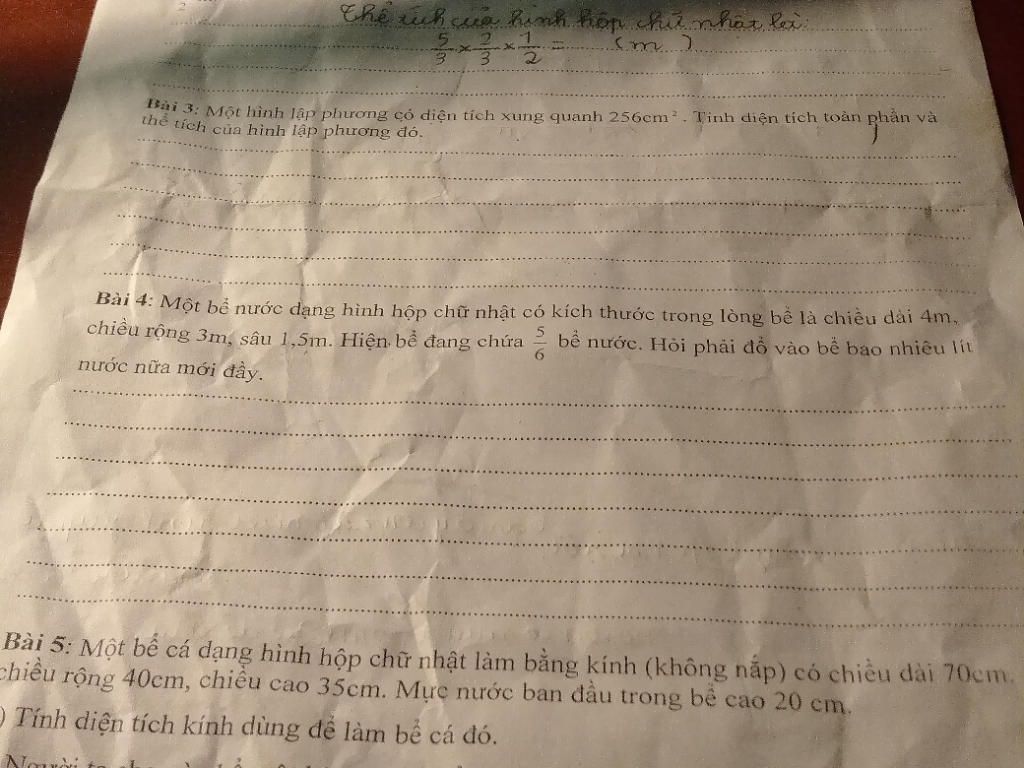 2
Thể tích của hình hộp chữ nhật là:
5/3 × 2/3 × 1/2 = (m )
Bài 3: Một hình lập phương có diện tích xung quanh 256cm². Tính diện tích toàn phần và
thể tích của hình lập phương đó.
Bài 4: Một bể nước dạng hình hộp chữ nhật có kích thước trong lòng bể là chiều dài 4m,
chiều rộng 3m, sâu 1,5m. Hiện bể đang chứa 5/6 bể nước. Hỏi phải đổ vào bể bao nhiêu lít
nước nữa mới đầy.
Bài 5: Một bể cá dạng hình hộp chữ nhật làm bằng kính (không nắp) có chiều dài 70cm,
chiều rộng 40cm, chiều cao 35cm. Mực nước ban đầu trong bể cao 20 cm.
) Tính diện tích kính dùng để làm bể cá đó.